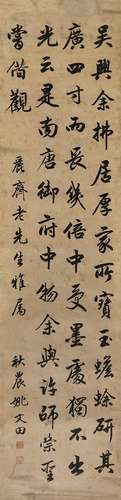 吳興余拂居厚家所寶玉蟾蜍研其
廣四寸而長幾倍中受墨處獨不出
光云是南唐御府中物余與許師崇至
嘗借觀
麗齋老先生雅屬
秋農姚文田